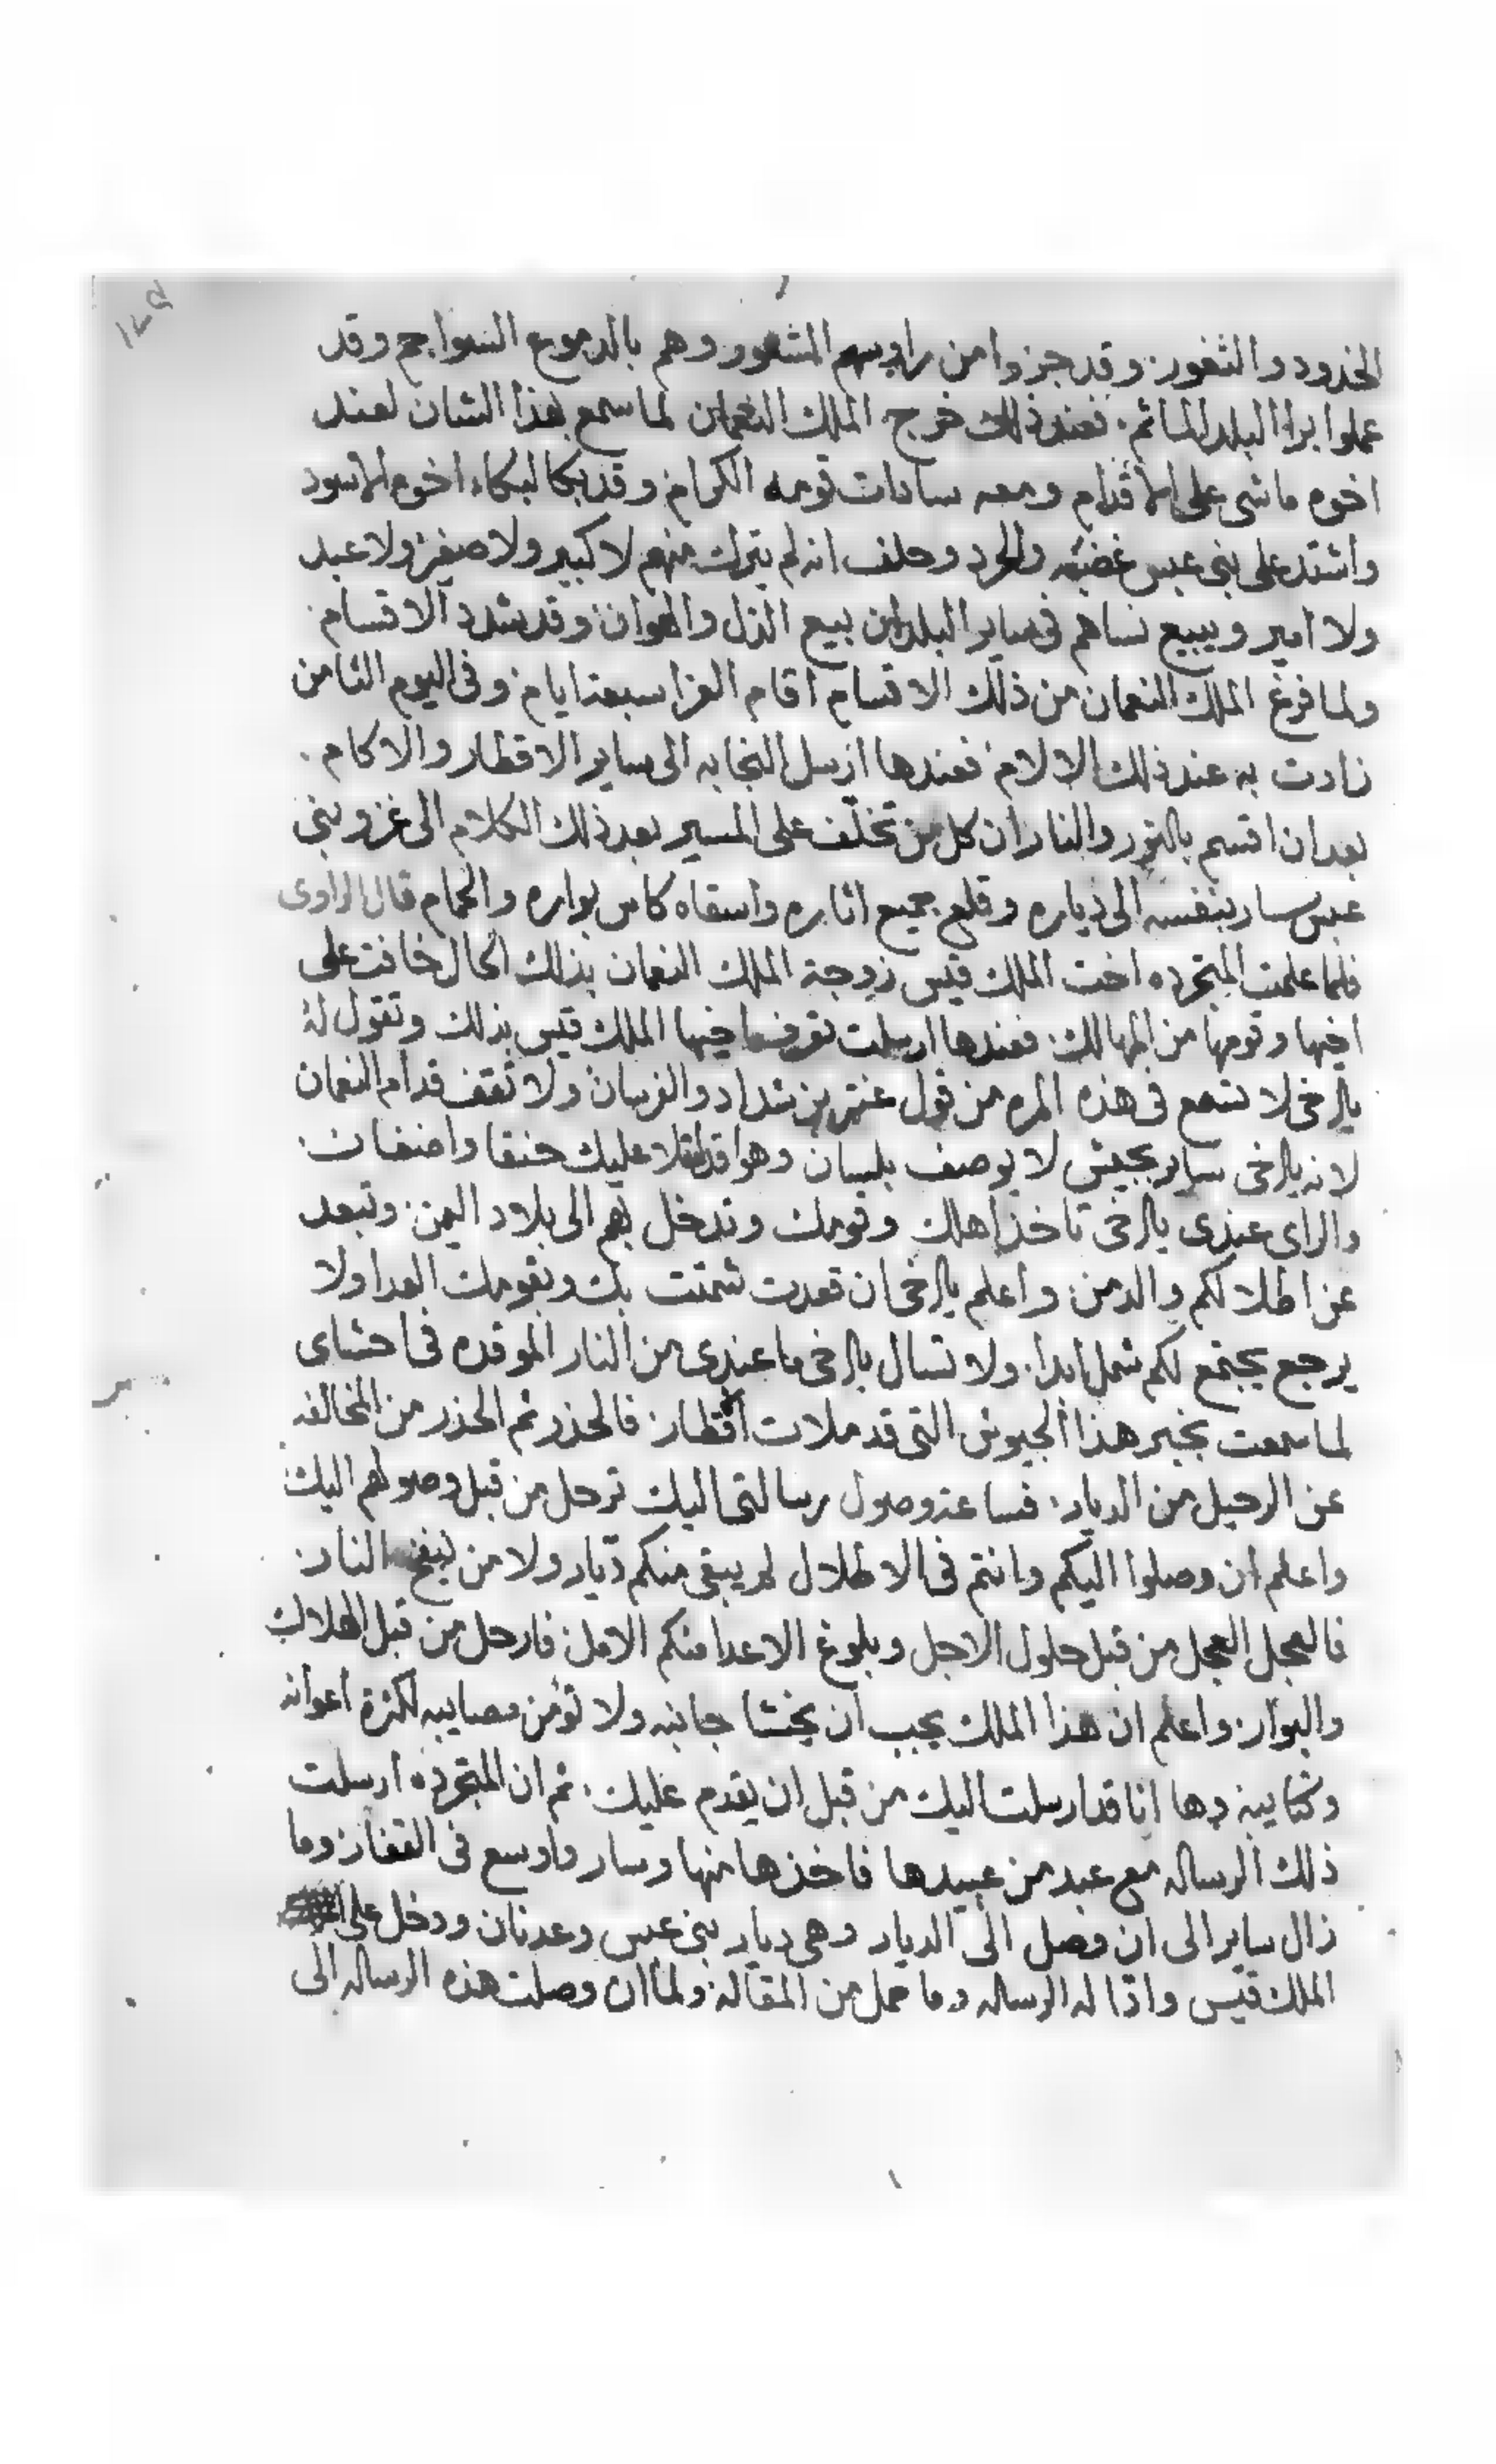 الخدود والثغور. وقد جزوا من راوسهم الشعور وهم بالدموع السواجم وقد
عملوا برا البلد المائم. فعند ذلك خرج الملك النعمان لما سمع بهذا الشان لعند
اخوه ماشى على الاقدام ومعه سادات قومه الكرام وقد بكا لبكاء اخوه الاسود
واشتد على بنى عبس غضبه والحرد وحلف انه لم يترك منهم لا كبير ولا صغير ولا عبد
ولا امير ويبيع نساهم فى ساير البلدان بيع الذل والهوان وقد شدد الاقسام
ولما فرغ الملك النعمان من ذلك الاقسام اقام العزا سبعة ايام. وفى اليوم الثامن
زادت به عند ذلك الالام فعندها ارسل النجابه الى ساير الاقطار والاكام.
بعد ان اقسم بالنور والنار ان كل من تخلف على المسير بعد ذلك الكلام الى غزو بنى
عبس سار بنفسه الى دياره وقلع جميع اثاره واسقاه كاس بواره والحمام قال الراوى
فلما علمت المتجرده اخت الملك قيس زوجة الملك النعمان بذلك الحال خافت على
اخيها وقومها من المهالك. فعندها ارسلت تعرف اخيها الملك قيس بذلك وتقول له
يا اخى لا تسمع فى هذه المره من قول عنتر بن شداد والفرسان ولا تقف قدام النعمان
لانه يا اخى ساير بجيش لا يوصف بلسان وهو قد امتلا عليك حنقا واضغان.
والراى عندى يا اخى تاخذ اهلك وقومك وتدخل بهم الى بلاد اليمن. وتبعد
عن اطلالكم والدمن. واعلم يا اخى ان قعدت شمتت بك وبقومك العدا ولا
يرجع يجتمع لكم شمل ابدا. ولا تسال يا اخى ما عندى من النار الموقده فى احشاى
لما سمعت بخبر هذا الجيوش التى قد ملات الاقطار. فالحذر ثم الحذر من المخالفه
عن الرحيل من الديار. فساعة وصول رسالتى اليك ترحل من قبل وصولهم اليك
واعلم ان وصلوا اليكم وانتم فى الاطلال لم يبقى منكم ديار ولا من ينفخ النار.
فالعجل العجل من قبل حلول الاجل وبلوغ الاعدا منكم الامل. فارحل من قبل الهلاك
والبوار. واعلم ان هذا الملك يجب ان يخشا جانبه ولا تؤمن مصايبه لكثرة اعوانه
وكتايبه وها انا قد ارسلت اليك من قبل ان يقدم عليك. ثم ان المتجرده ارسلت
ذلك الرساله مع عبد من عبيدها فاخذها منها وسار واوسع فى القفار. وما
زال ساير الى ان وصل الى الديار وهى ديار بنى عبس وعدنان ودخل على
الملك قيس وادا له الرساله وما حمل من المقاله. ولما ان وصلت هذه الرساله الى